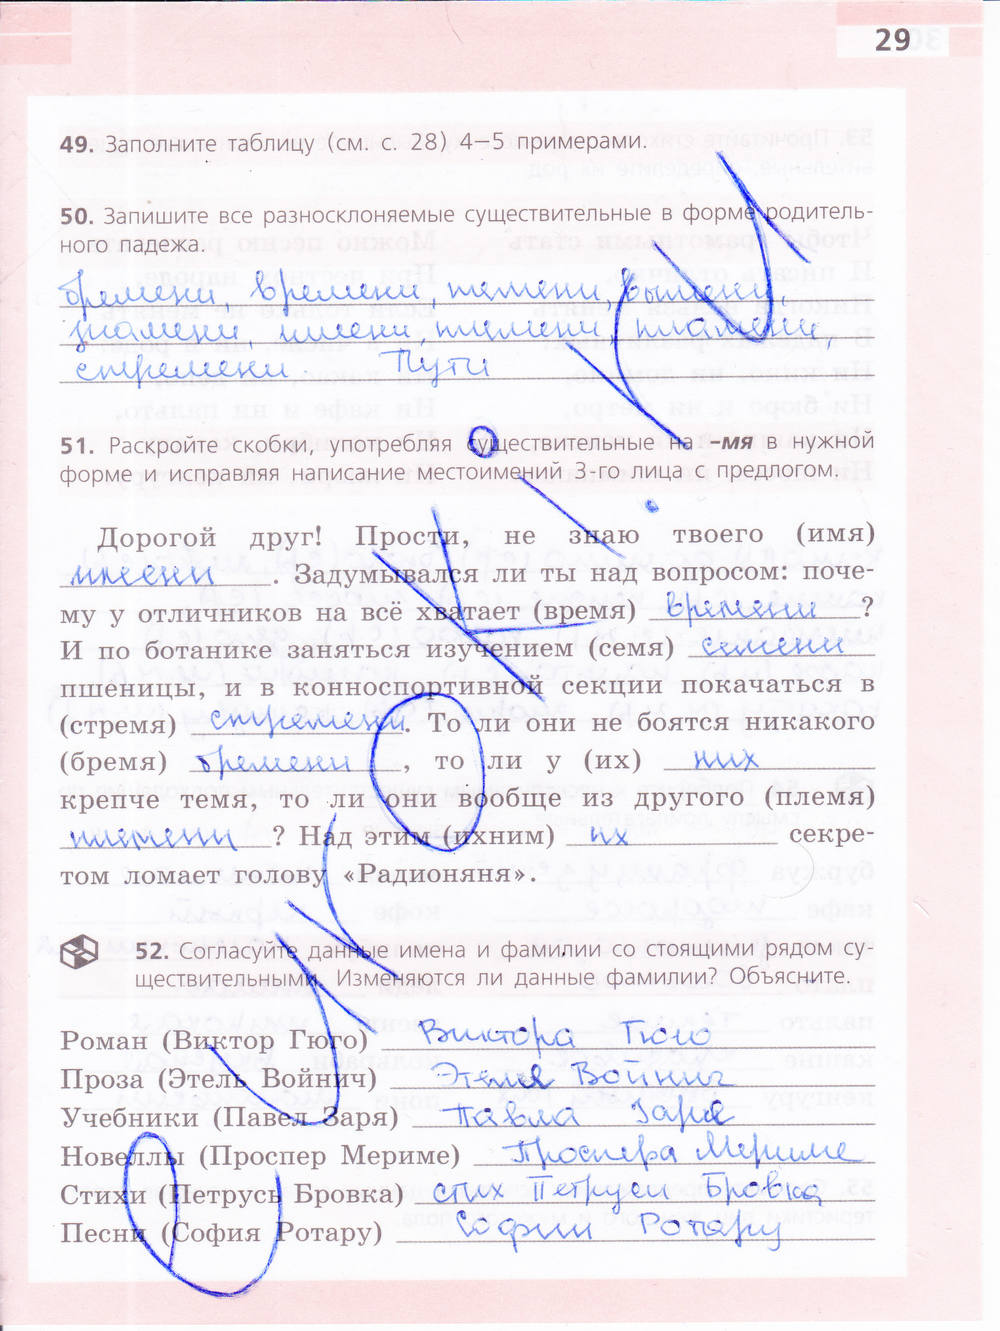 29
49. Заполните таблицу (см. с. 28) 4–5 примерами.
50. Запишите все разносклоняемые существительные в форме родитель-
ного падежа.
бремени, времени, темени, вымени,
знамени, имени, племени, пламени,
стремени. Пути
51. Раскройте скобки, употребляя существительные на –мя в нужной
форме и исправляя написание местоимений 3-го лица с предлогом.
Дорогой друг! Прости, не знаю твоего (имя)
имени . Задумывался ли ты над вопросом: поче-
му у отличников на всё хватает (время) времени ?
И по ботанике заняться изучением (семя) семени
пшеницы, и в конноспортивной секции покачаться в
(стремя) стремени. То ли они не боятся никакого
(бремя) бремени , то ли у (их) них
крепче темя, то ли они вообще из другого (племя)
племени ? Над этим (ихним) их секре-
том ломает голову «Радионяня».
52. Согласуйте данные имена и фамилии со стоящими рядом су-
ществительными. Изменяются ли данные фамилии? Объясните.
Роман (Виктор Гюго) Виктора Гюго
Проза (Этель Войнич) Этель Войнич
Учебники (Павел Заря) Павла Зари
Новеллы (Проспер Мериме) Проспера Мериме
Стихи (Петрусь Бровка) стих Петруся Бровка
Песни (София Ротару) Софии Ротару